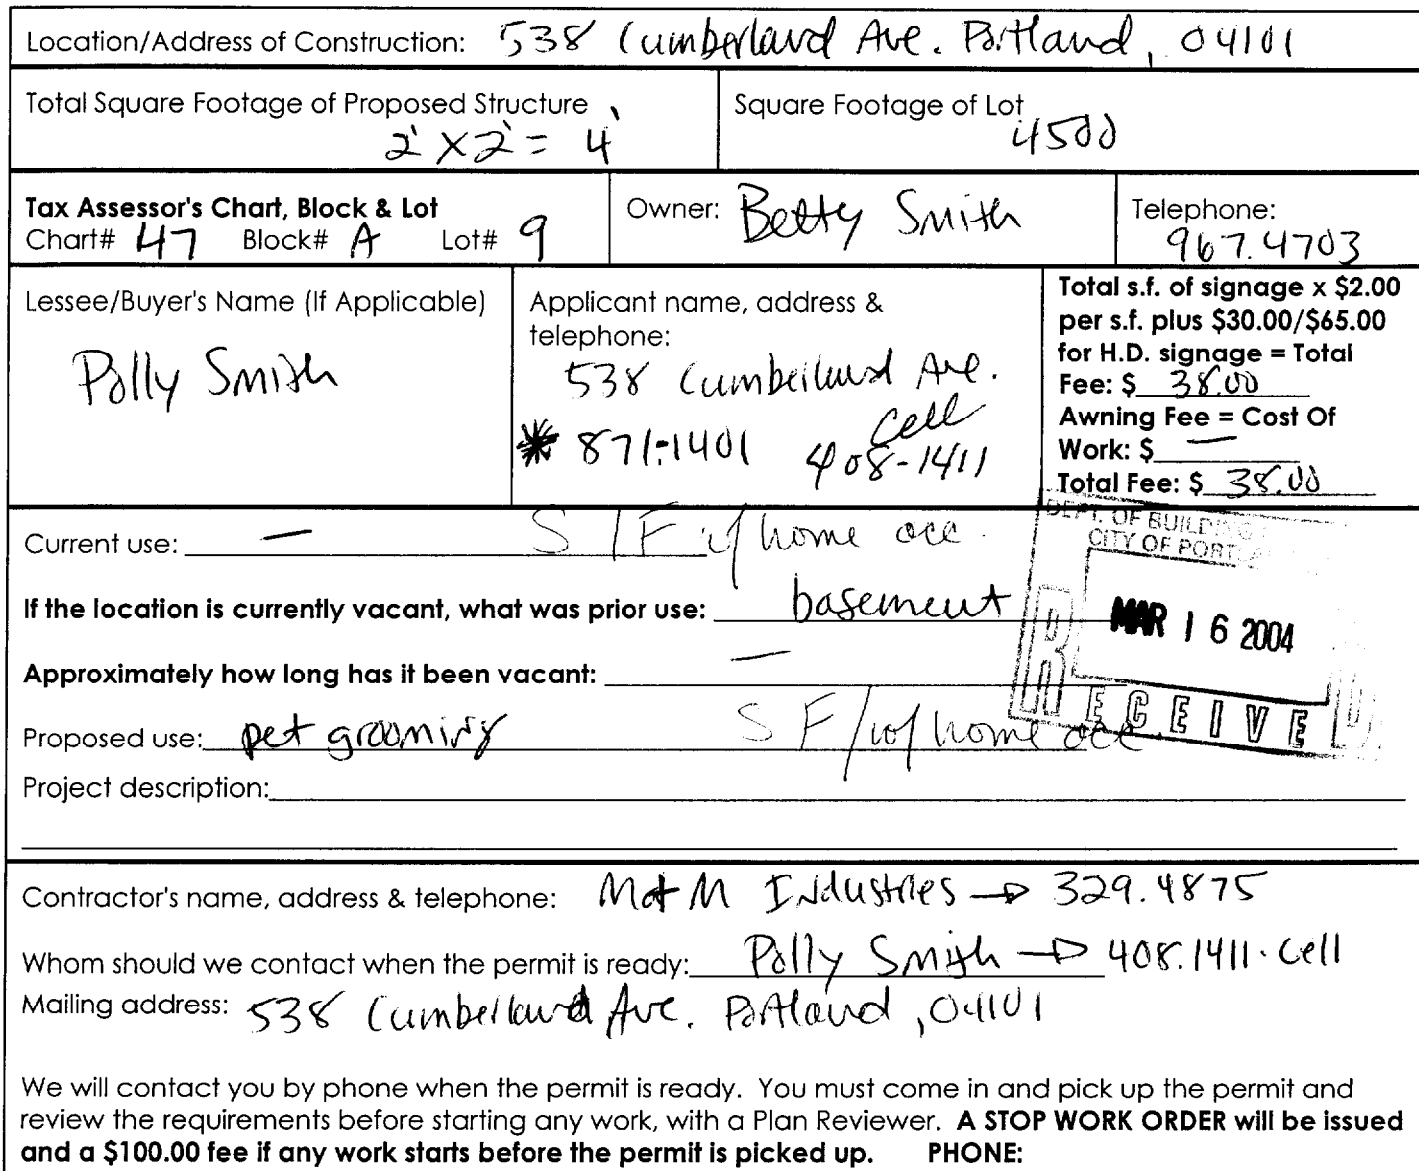 Location/Address of Construction: 538 Cumberland Ave. Portland, 04101
Total Square Footage of Proposed Structure
2' X 2' = 4'
Square Footage of Lot
4500
Tax Assessor's Chart, Block & Lot
Chart# 47 Block# A Lot# 9
Owner: Betty Smith
Telephone:
967.4703
Lessee/Buyer's Name (If Applicable)
Polly Smith
Applicant name, address &
telephone:
538 Cumberland Ave.
* 871-1401 cell
408-1411
Total s.f. of signage x $2.00
per s.f. plus $30.00/$65.00
for H.D. signage = Total
Fee: $ 38.00
Awning Fee = Cost Of
Work: $ —
Total Fee: $ 38.00
Current use: — S/F w/ home occ.
DEPT. OF BUILDING
CITY OF PORTLA
If the location is currently vacant, what was prior use: basement
MAR 16 2004
Approximately how long has it been vacant: —
RECEIVED
Proposed use: pet grooming SF/w/ home occ
Project description:
Contractor's name, address & telephone: M+M Industries → 329.4875
Whom should we contact when the permit is ready: Polly Smith → 408.1411. cell
Mailing address: 538 Cumberland Ave. Portland, 04101
We will contact you by phone when the permit is ready. You must come in and pick up the permit and
review the requirements before starting any work, with a Plan Reviewer. A STOP WORK ORDER will be issued
and a $100.00 fee if any work starts before the permit is picked up. PHONE: